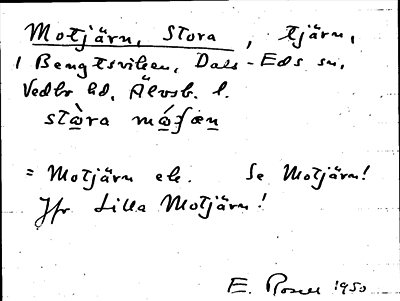 Motjärn, Stora, tjärn,
i Bengtsviken, Dals-Eds sn,
Vedbo hd, Älvsb. l.
= Motjärn ek. Se Motjärn!
Jfr Lilla Motjärn!
E. Rosell 1950